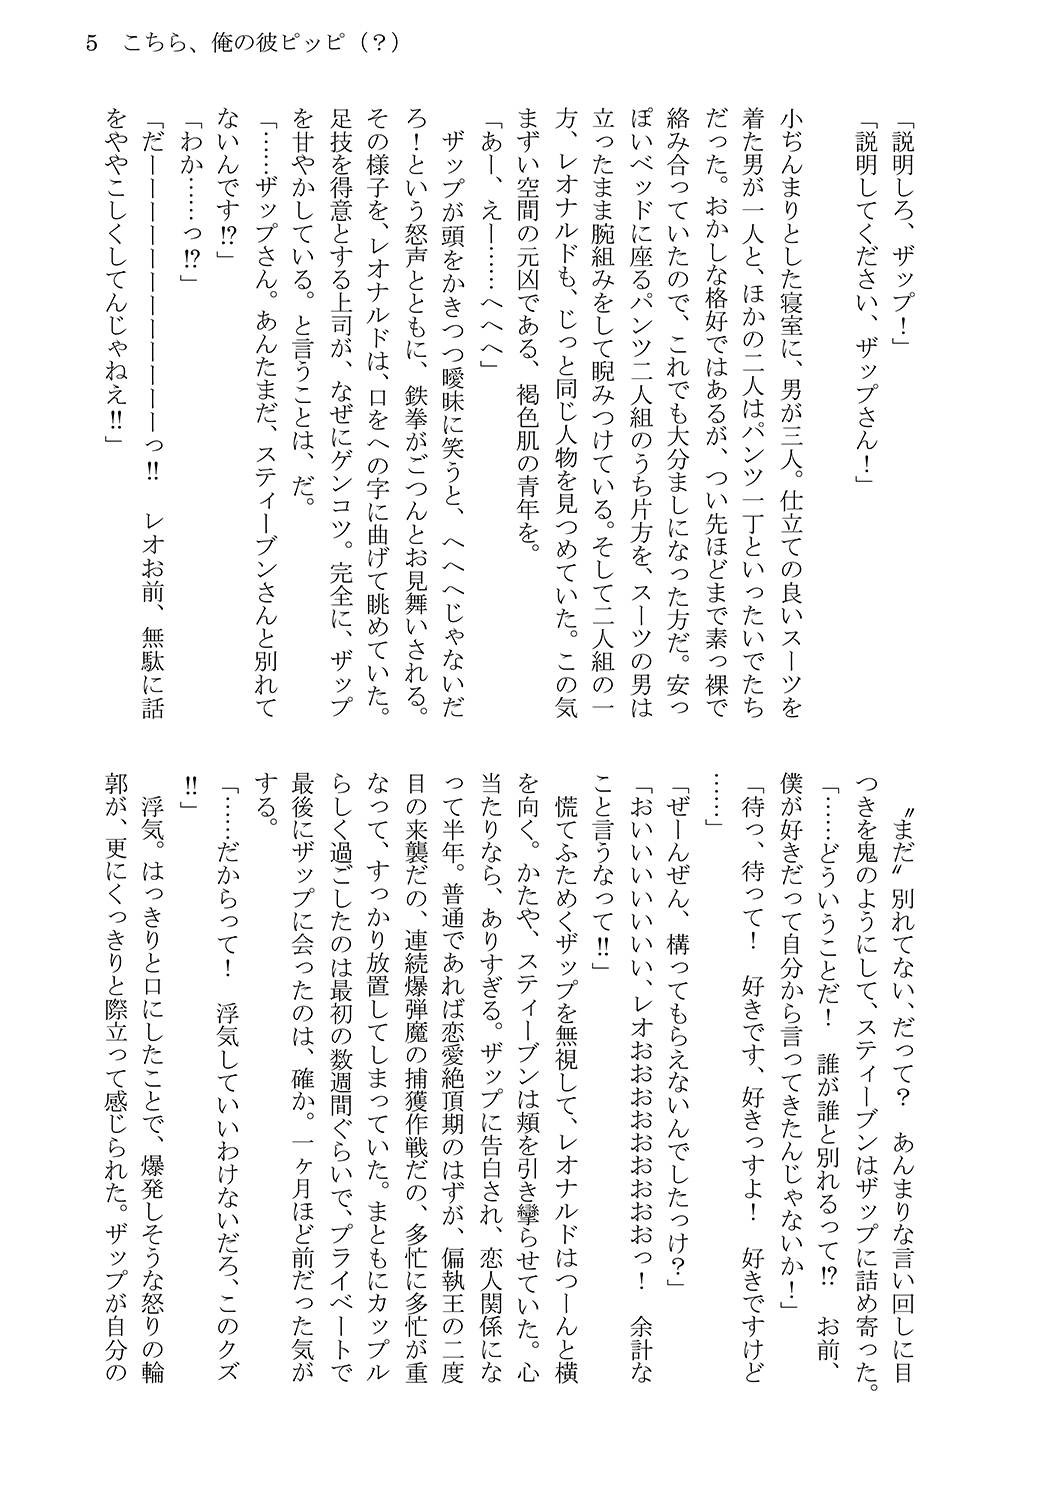 5　こちら、俺の彼ピッピ（？）
「説明しろ、ザップ！」
「説明してください、ザップさん！」
小ぢんまりとした寝室に、男が三人。仕立ての良いスーツを
着た男が一人と、ほかの二人はパンツ一丁といったいでたち
だった。おかしな格好ではあるが、つい先ほどまで素っ裸で
絡み合っていたので、これでも大分ましになった方だ。安っ
ぽいベッドに座るパンツ二人組のうち片方を、スーツの男は
立ったまま腕組みをして睨みつけている。そして二人組の一
方、レオナルドも、じっと同じ人物を見つめていた。この気
まずい空間の元凶である、褐色肌の青年を。
「あー、えー……へへへ」
　ザップが頭をかきつつ曖昧に笑うと、へへへじゃないだ
ろ！という怒声とともに、鉄拳がごつんとお見舞いされる。
その様子を、レオナルドは、口をへの字に曲げて眺めていた。
足技を得意とする上司が、なぜにゲンコツ。完全に、ザップ
を甘やかしている。と言うことは、だ。
「……ザップさん。あんたまだ、スティーブンさんと別れて
ないんです⁉」
「わか……っ⁉」
「だーーーーーーーーーーーっ‼　レオお前、無駄に話
をややこしくしてんじゃねえ‼」
　〝まだ〟別れてない、だって？　あんまりな言い回しに目
つきを鬼のようにして、スティーブンはザップに詰め寄った。
「……どういうことだ！　誰が誰と別れるって⁉　お前、
僕が好きだって自分から言ってきたんじゃないか！」
「待っ、待って！　好きです、好きっすよ！　好きですけど
……」
「ぜーんぜん、構ってもらえないんでしたっけ？」
「おいいいいいい、レオおおおおおおおおっ！　余計な
こと言うなって‼」
　慌てふためくザップを無視して、レオナルドはつーんと横
を向く。かたや、スティーブンは頬を引き攣らせていた。心
当たりなら、ありすぎる。ザップに告白され、恋人関係にな
って半年。普通であれば恋愛絶頂期のはずが、偏執王の二度
目の来襲だの、連続爆弾魔の捕獲作戦だの、多忙に多忙が重
なって、すっかり放置してしまっていた。まともにカップル
らしく過ごしたのは最初の数週間ぐらいで、プライベートで
最後にザップに会ったのは、確か。一ヶ月ほど前だった気が
する。
「……だからって！　浮気していいわけないだろ、このクズ
‼」
　浮気。はっきりと口にしたことで、爆発しそうな怒りの輪
郭が、更にくっきりと際立って感じられた。ザップが自分の